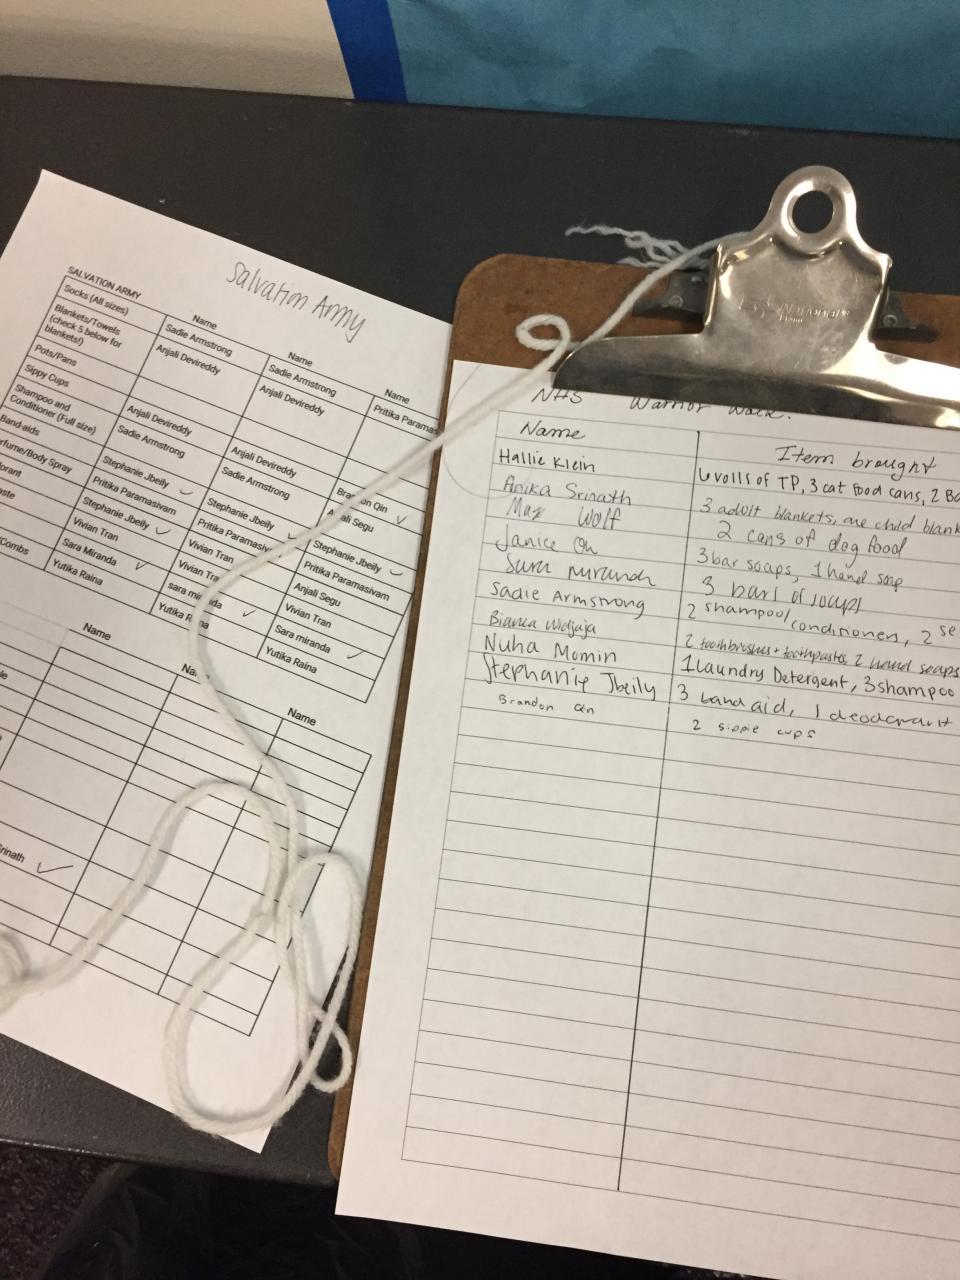 Salvation Army
SALVATION ARMY Name Name Name
Socks (All sizes) Sadie Armstrong Sadie Armstrong Pritika Paramas
Blankets/Towels (check 5 below for blankets!) Anjali Devireddy Anjali Devireddy
Pots/Pans Anjali Devireddy Anjali Devireddy
Sippy Cups Sadie Armstrong Sadie Armstrong Brandon Qin
Shampoo and Conditioner (Full size) Stephanie Jbeily Stephanie Jbeily Anjali Segu
Band-aids Pritika Paramasivam Pritika Paramasiv Stephanie Jbeily
rfume/Body Spray Stephanie Jbeily Vivian Tran Pritika Paramasivam
orant Vivian Tran Vivian Tra Anjali Segu
aste Sara Miranda sara miranda Vivian Tran
Combs Yutika Raina Yutika Raina Sara miranda
Yutika Raina
Name Name
Name
Srinath
NHS Warrior Walk.
Name Item brought
Hallie Klein 6 rolls of TP, 3 cat food cans, 2 Ba
Anika Srinath 3 adult blankets, one child blank
Max Wolf 2 cans of dog food
Janice Oh 3 bar soaps, 1 hand soap
Sara Miranda 3 bars of soaps
Sadie Armstrong 2 shampoo/conditioners, 2 se
Bianca Widjaja 2 toothbrushes + toothpastes, 2 hand soaps
Nuha Momin 1 Laundry Detergent, 3 shampoo
Stephanie Jbeily 3 band aid, 1 deodorant
Brandon Qin 2 sippie cups